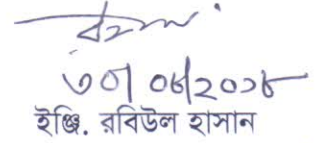 ৩০/০৬/২০১৮
ইঞ্জি. রবিউল হাসান